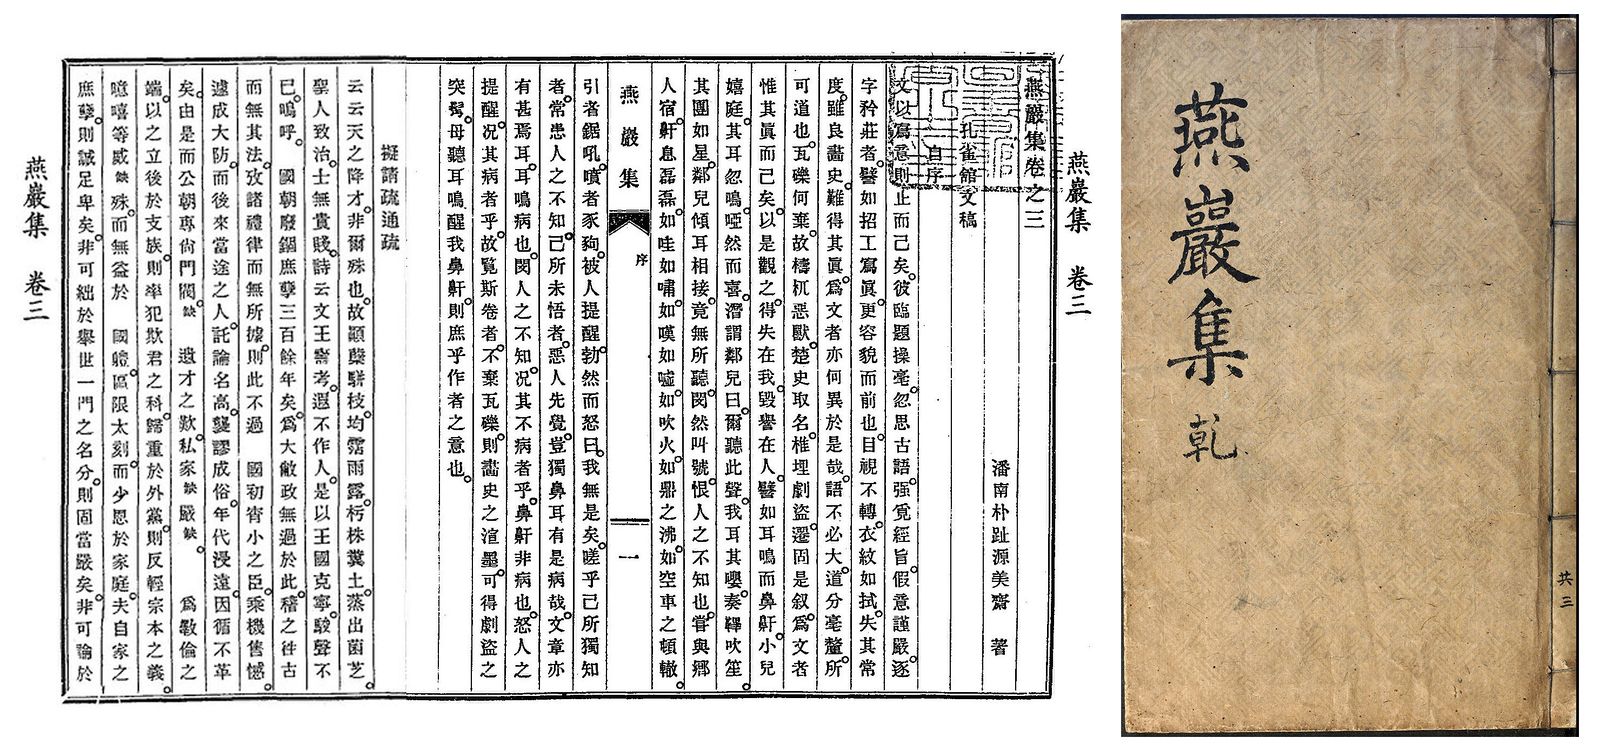 燕巖集 卷三
燕巖集卷之三
潘南朴趾源美齋 著
孔雀館文稿
自序
文以寫意則止而已矣。彼臨題操毫。忽思古語。强覓經旨。假意謹嚴。逐
字矜莊者。譬如招工寫眞。更容貌而前也。目視不轉。衣紋如拭。失其常
度。雖良畵史。難得其眞。爲文者亦何異於是哉。語不必大。道分毫釐。所
可道也。瓦礫何棄。故檮杌惡獸。楚史取名。椎埋劇盜。遷固是叙。爲文者
惟其眞而已矣。以是觀之。得失在我。毁譽在人。譬如耳鳴而鼻鼾。小兒
嬉庭。其耳忽鳴。啞然而喜。潛謂鄰兒曰。爾聽此聲。我耳其嚶。奏鞸吹笙。
其團如星。鄰兒傾耳相接。竟無所聽。閔然叫號。恨人之不知也。甞與鄕
人宿。鼾息磊磊。如哇如嘯。如嘆如噓。如吹火。如鼎之沸。如空車之頓轍。
燕巖集 序 一
引者鋸吼。噴者豕狗。被人提醒。勃然而怒曰。我無是矣。嗟乎己所獨知
者。常患人之不知。己所未悟者。惡人先覺。豈獨鼻耳有是病哉。文章亦
有甚焉耳。耳鳴病也。閔人之不知。况其不病者乎。鼻鼾非病也。怒人之
提醒。况其病者乎。故覽斯卷者。不棄瓦礫。則畵史之渲墨。可得劇盜之
突鬢。毋聽耳鳴。醒我鼻鼾。則庶乎作者之意也。
擬請疏通疏
云云天之降才。非爾殊也。故顚蘖騈枝。均霑雨露。朽株糞土。蒸出菌芝。
聖人致治。士無貴賤。詩云文王壽考。遐不作人。是以王國克寧。駿聲不
已。嗚呼。 國朝廢錮庶孼三百餘年矣。爲大敝政無過於此。稽之往古
而無其法。攷諸禮律而無所據。則此不過 國初宵小之臣。乘機售憾。
遽成大防。而後來當途之人。託論名高。襲謬成俗。年代浸遠。因循不革
矣。由是而公朝專尙門閥。缺 遺才之歎。私家缺嚴缺。 爲斁倫之
端。以之立後於支族。則率犯欺君之科。歸重於外黨。則反輕宗本之義。
噫嘻等威缺殊。而無益於 國軆。區限太刻。而少恩於家庭。夫自家之
庶孼。則誠足卑矣。非可絀於擧世一門之名分。則固當嚴矣。非可論於
燕巖集 卷三
燕巖集 乾
共三